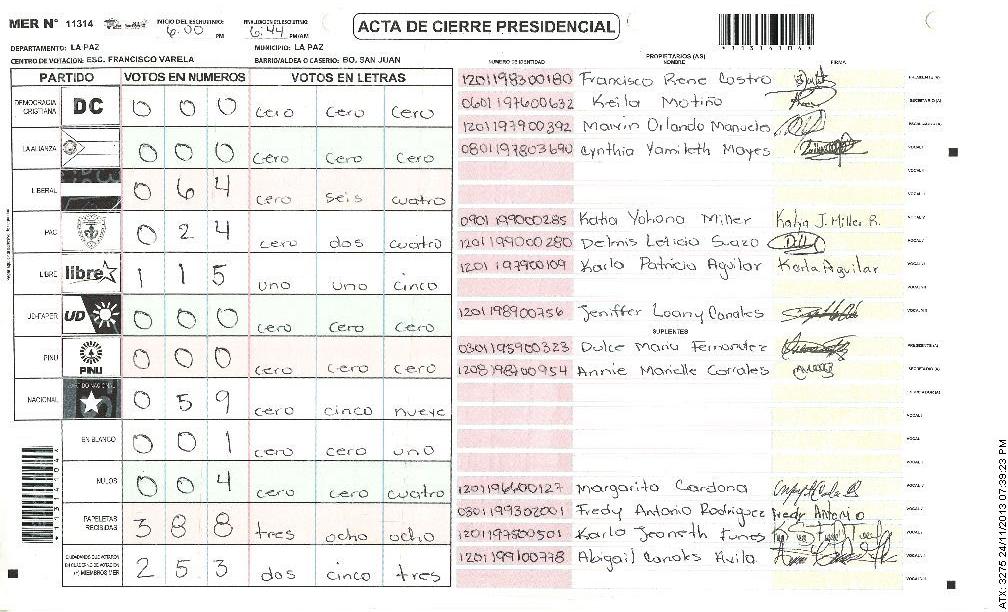 MER N° 11314
INICIO DEL ESCRUTINIO: 6:00 PM
FINALIZACION DEL ESCRUTINIO: 6:44 PM/AM
ACTA DE CIERRE PRESIDENCIAL
DEPARTAMENTO: LA PAZ MUNICIPIO: LA PAZ
CENTRO DE VOTACION: ESC. FRANCISCO VARELA BARRIO/ALDEA O CASERIO: BO. SAN JUAN
PARTIDO VOTOS EN NUMEROS VOTOS EN LETRAS
DEMOCRACIA CRISTIANA DC 0 0 0 cero cero cero
LA ALIANZA 0 0 0 cero cero cero
LIBERAL 0 6 4 cero seis cuatro
PAC 0 2 4 cero dos cuatro
LIBRE libre 1 1 5 uno uno cinco
UD-FAPER UD 0 0 0 cero cero cero
PINU PINU 0 0 0 cero cero cero
NACIONAL 0 5 9 cero cinco nueve
EN BLANCO 0 0 1 cero cero uno
NULOS 0 0 4 cero cero cuatro
PAPELETAS RECIBIDAS 3 8 8 tres ocho ocho
CIUDADANOS QUE VOTARON EN CUADERNO DE VOTACION (+) MIEMBROS MER 2 5 3 dos cinco tres
PROPIETARIOS (AS)
NUMERO DE IDENTIDAD NOMBRE FIRMA
1201198300180 Francisco Rene Castro PRESIDENTE (A)
0601197600632 Keila Motiño SECRETARIO (A)
1201197900392 Marvin Orlando Manueles
0801197803690 Cynthia Yamileth Mayes
0901199000285 Katia Yohana Miller Katya J. Miller R.
1201199000280 Delmis Leticia Suazo
1201197900109 Karla Patricia Aguilar Karla Aguilar
1201198900756 Jeniffer Loany Canales
SUPLENTES
0301195900323 Dulce Maria Fernandez PRESIDENTE (A)
1208198700954 Annie Marielle Corrales SECRETARIO (A)
1201196400127 Margarito Cardona
0301199302001 Fredy Antonio Rodriguez Fredy Antonio
1201197500501 Karla Jeaneth Funes
1201199100778 Abigail Canales Avila
ATX: 3275 24/11/2013 07:39:23 PM